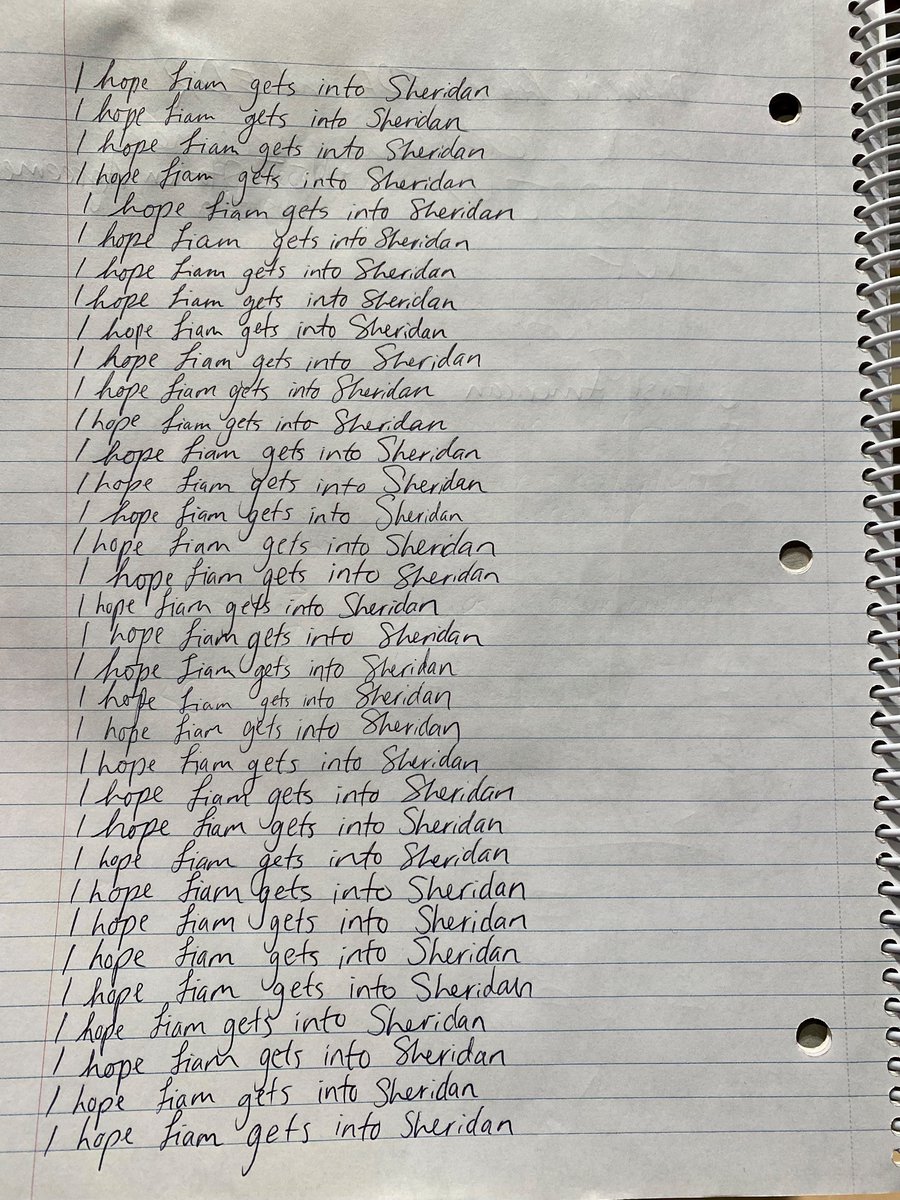 I hope Liam gets into Sheridan
I hope Liam gets into Sheridan
I hope Liam gets into Sheridan
I hope Liam gets into Sheridan
I hope Liam gets into Sheridan
I hope Liam gets into Sheridan
I hope Liam gets into Sheridan
I hope Liam gets into Sheridan
I hope Liam gets into Sheridan
I hope Liam gets into Sheridan
I hope Liam gets into Sheridan
I hope Liam gets into Sheridan
I hope Liam gets into Sheridan
I hope Liam gets into Sheridan
I hope Liam gets into Sheridan
I hope Liam gets into Sheridan
I hope Liam gets into Sheridan
I hope Liam gets into Sheridan
I hope Liam gets into Sheridan
I hope Liam gets into Sheridan
I hope Liam gets into Sheridan
I hope Liam gets into Sheridan
I hope Liam gets into Sheridan
I hope Liam gets into Sheridan
I hope Liam gets into Sheridan
I hope Liam gets into Sheridan
I hope Liam gets into Sheridan
I hope Liam gets into Sheridan
I hope Liam gets into Sheridan
I hope Liam gets into Sheridan
I hope Liam gets into Sheridan
I hope Liam gets into Sheridan
I hope Liam gets into Sheridan
I hope Liam gets into Sheridan